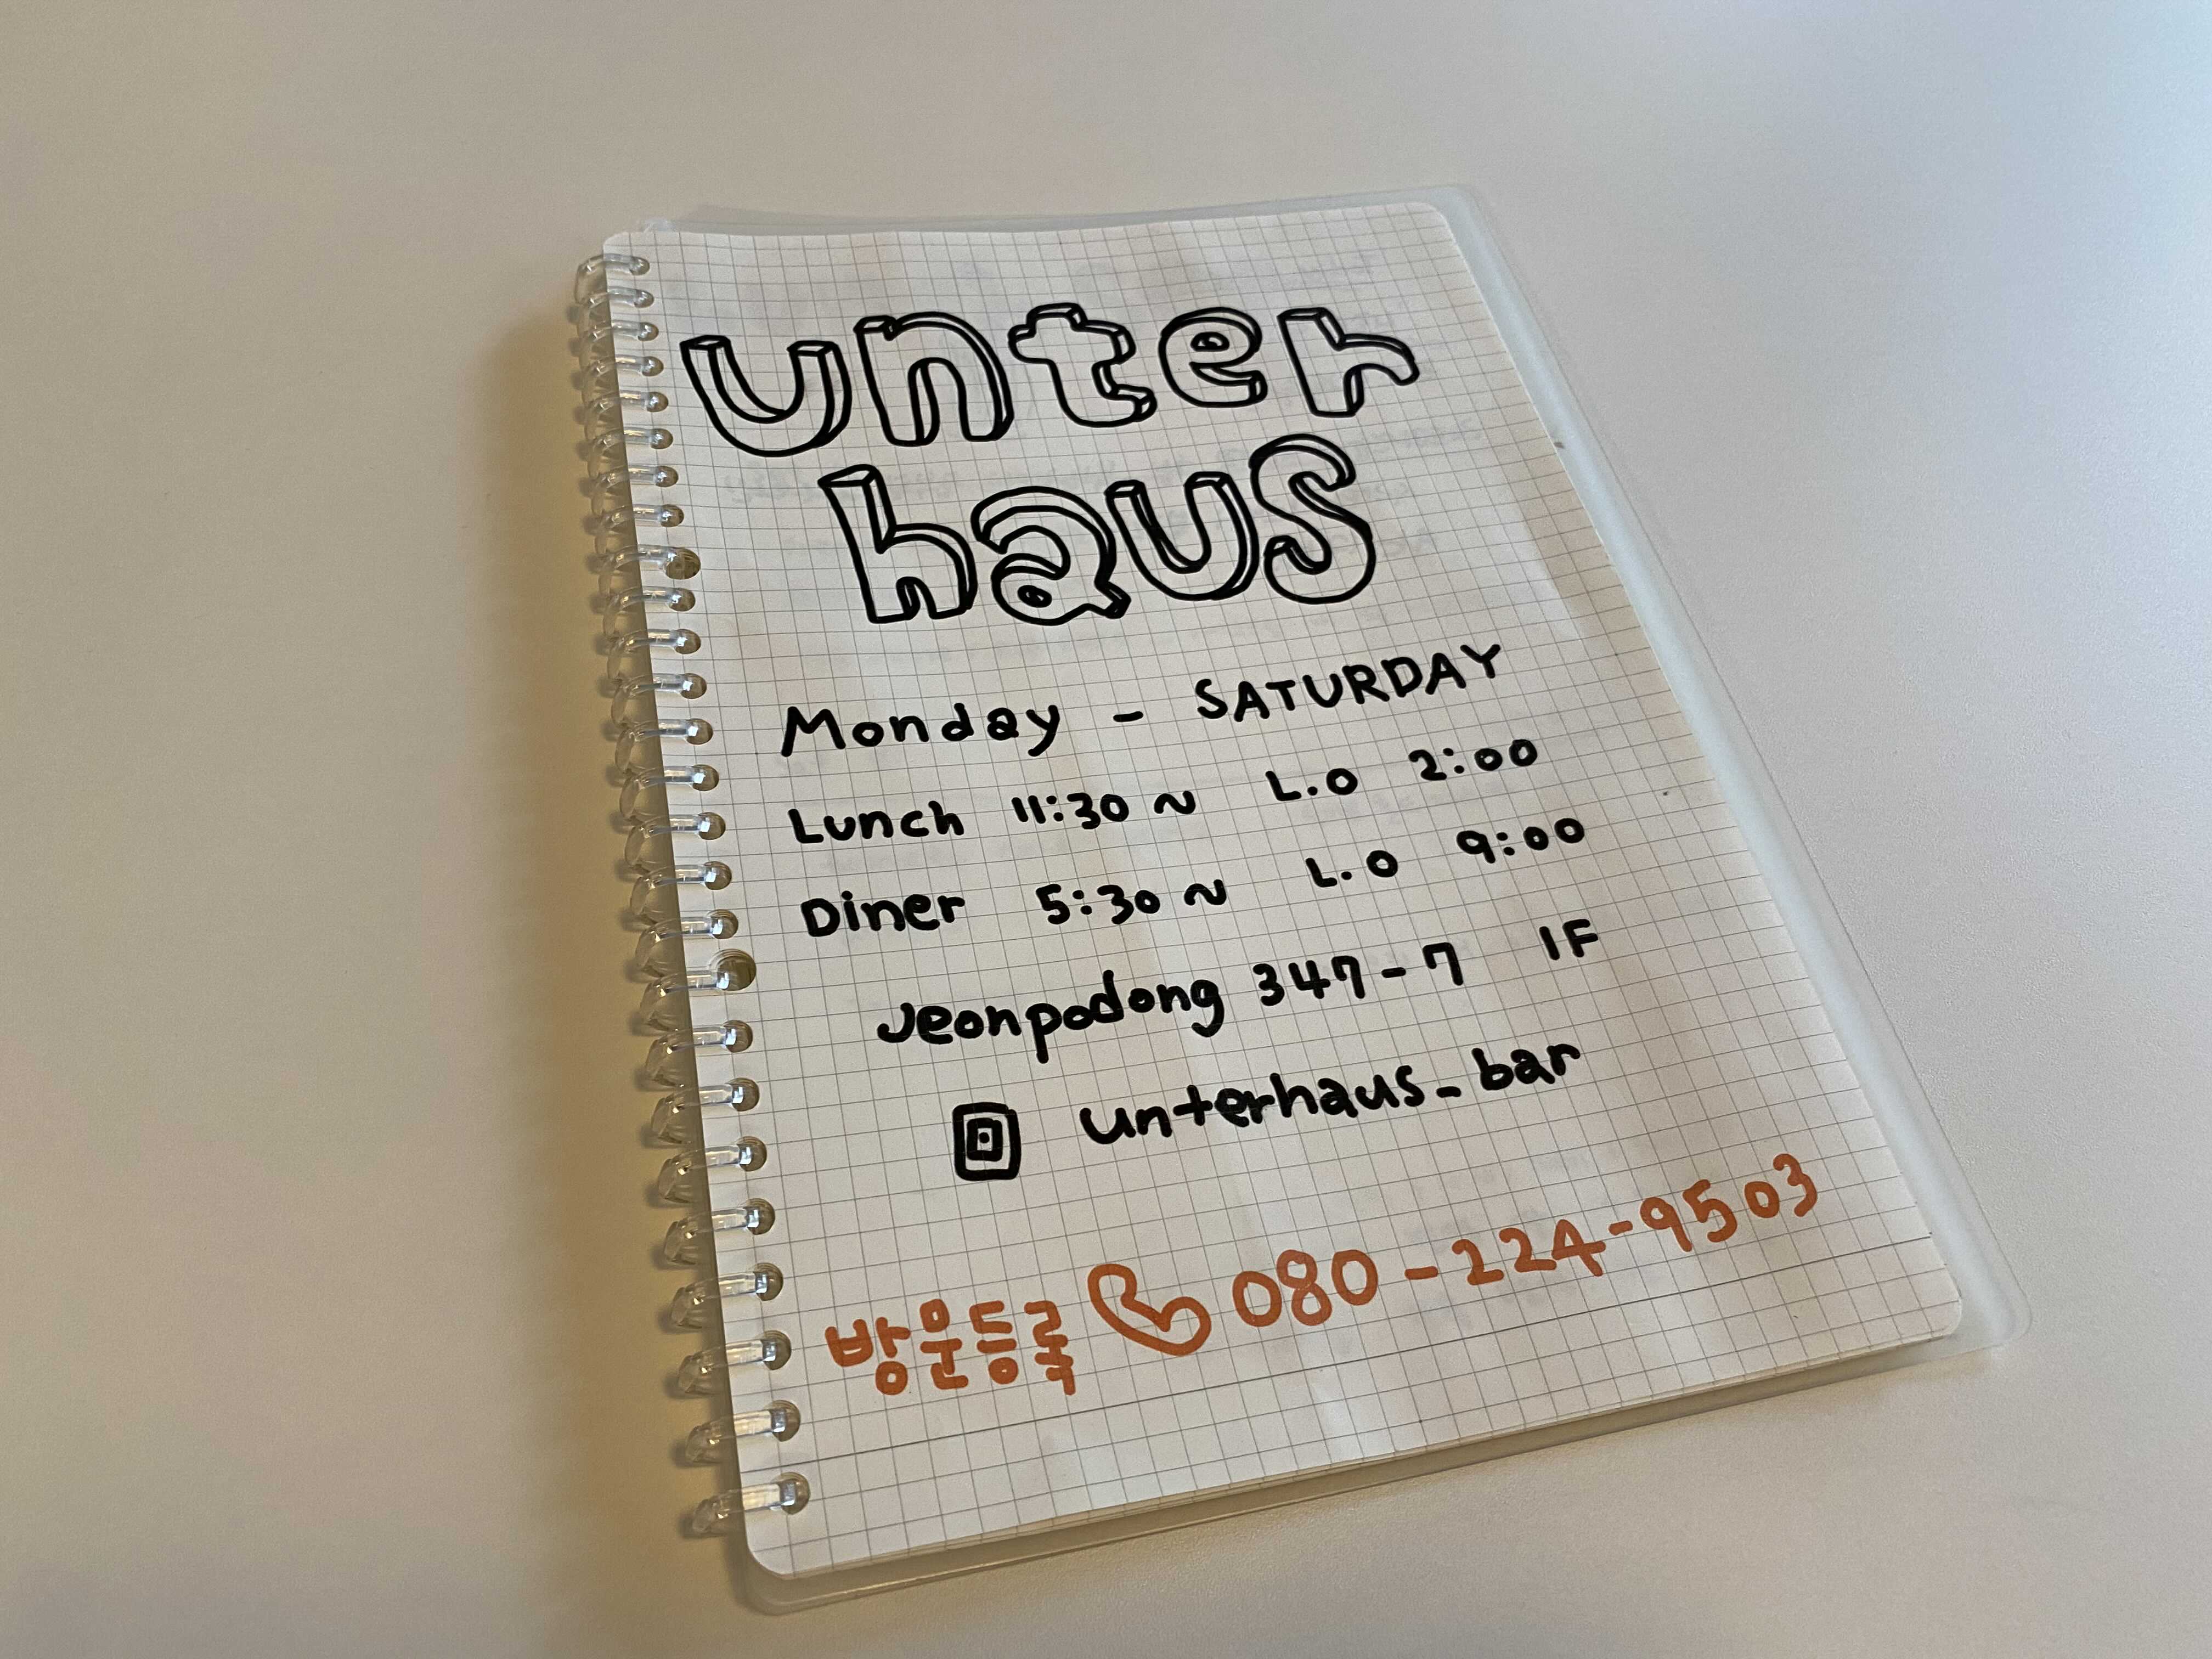 unter
haus
Monday - SATURDAY
Lunch 11:30 ~ L.O 2:00
Diner 5:30 ~ L.O 9:00
Jeonpodong 347-7 1F
unterhaus_bar
방문등록 080-224-9503